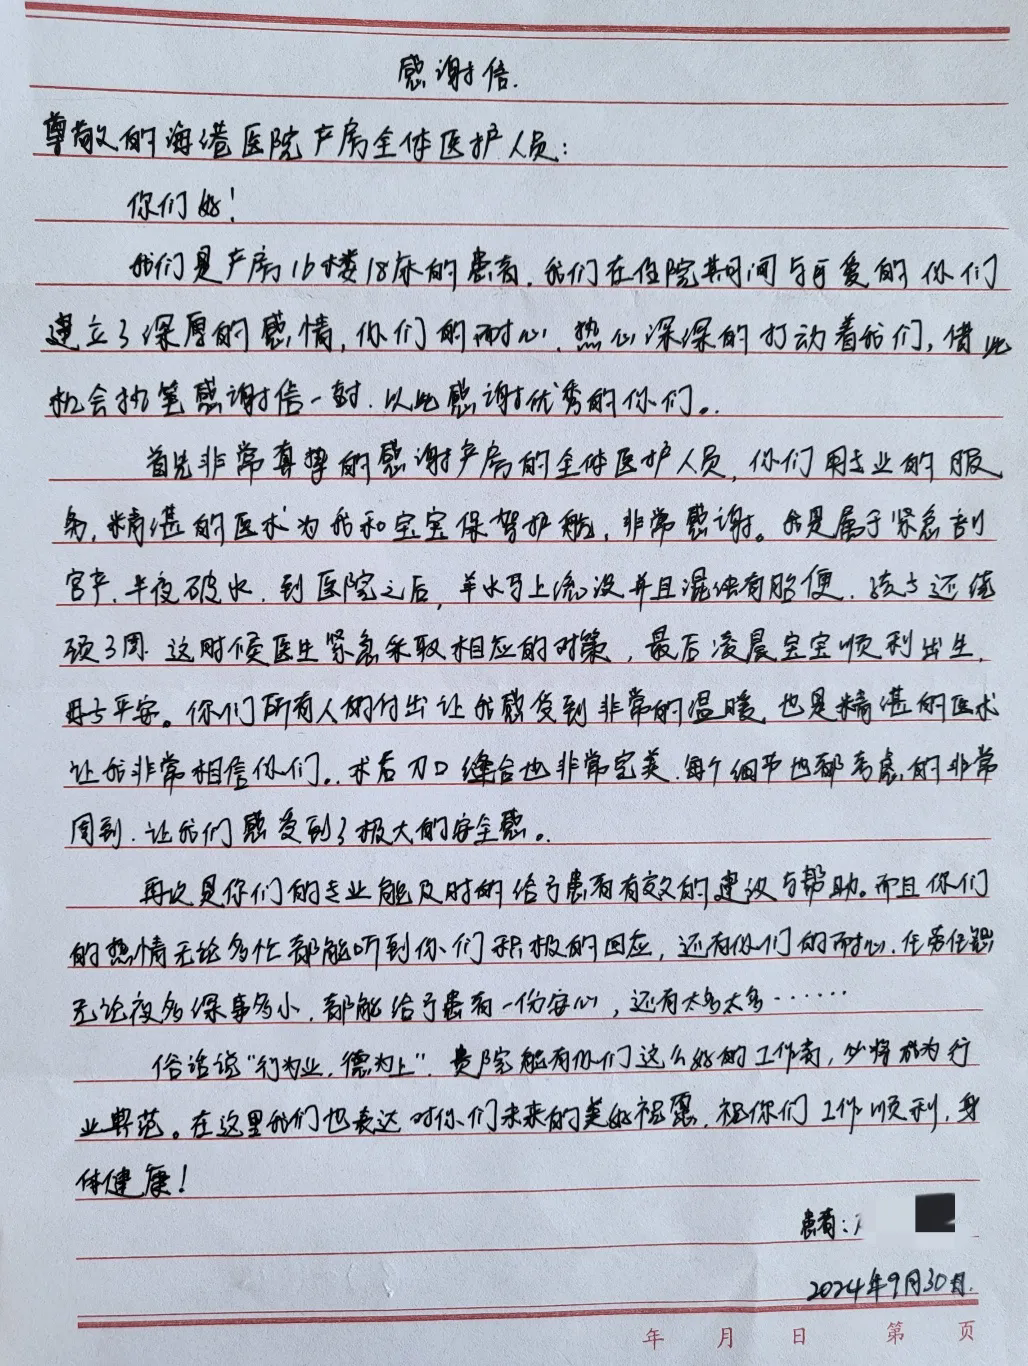 感谢信.
尊敬的海港医院产房全体医护人员:
你们好!
我们是产房16楼18床的患者.我们在住院其间与可爱的你们
建立了深厚的感情,你们的耐心、热心深深的打动着我们,借此
机会执笔感谢信一封.以此感谢优秀的你们。
首先非常真挚的感谢产房的全体医护人员,你们用专业的服
务,精湛的医术为我和宝宝保驾护航,非常感谢。我是属于紧急剖
宫产.半夜破水.到医院之后,羊水马上流没并且混浊有胎便.孩子还绕
颈3周.这时候医生紧急采取相应的对策,最后凌晨宝宝顺利出生.
母子平安。你们所有人的付出让我感受到非常的温暖,也是精湛的医术
让我非常相信你们。术后刀口缝合也非常完美.每个细节也都考虑的非常
周到.让我们感受到了极大的安全感。
再次是你们的专业能及时的给予患者有效的建议与帮助。而且你们
的热情无论多忙都能听到你们积极的回应,还有你们的耐心.任劳任怨
无论夜多深事多小.都能给予患者一份安心,还有太多太多……
俗话说“行为业,德为上”.贵院能有你们这么好的工作者,必将成为行
业典范。在这里我们也表达对你们未来的美好祝愿.祝你们工作顺利,身
体健康!
患者:
2024年9月30日.
年 月 日 第 页